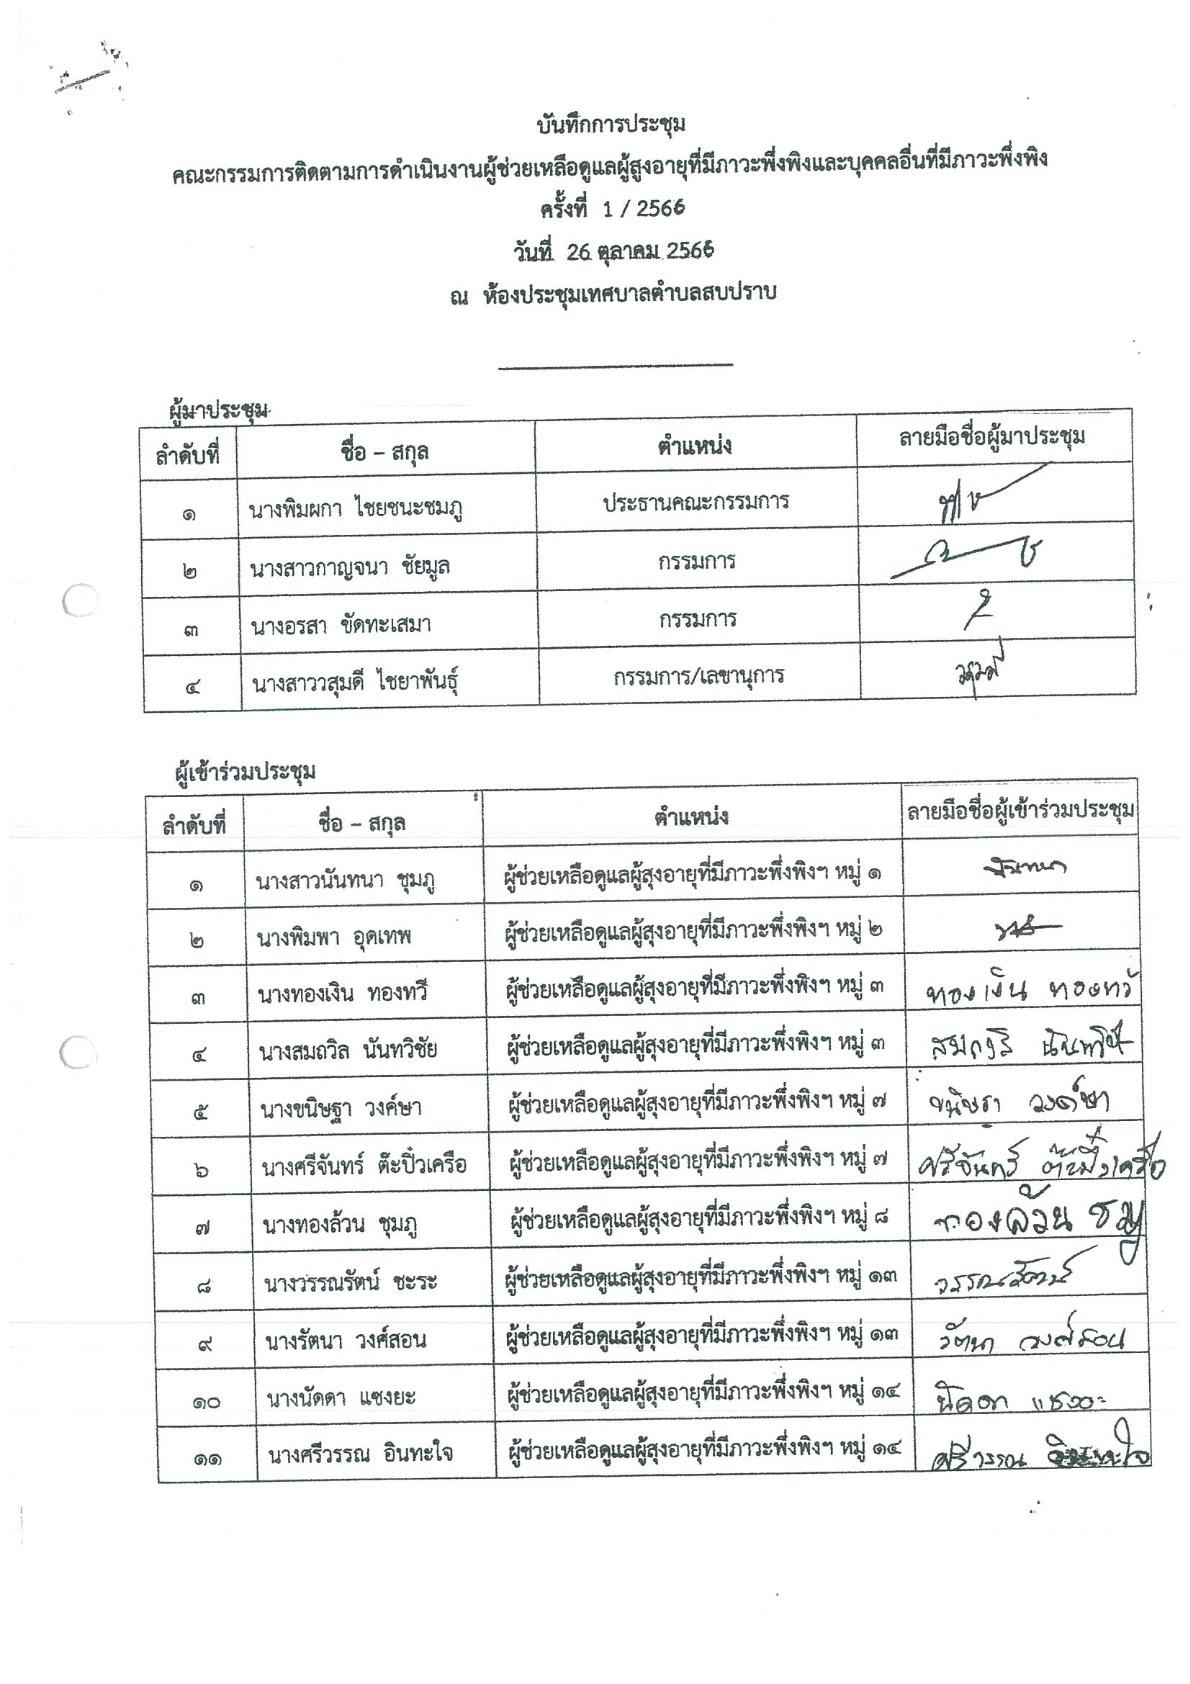 บันทึกการประชุม
คณะกรรมการติดตามการดำเนินงานผู้ช่วยเหลือดูแลผู้สูงอายุที่มีภาวะพึ่งพิงและบุคคลอื่นที่มีภาวะพึ่งพิง
ครั้งที่ 1 / 2566
วันที่ 26 ตุลาคม 2566
ณ ห้องประชุมเทศบาลตำบลสบปราบ
ผู้มาประชุม
ลำดับที่ ชื่อ – สกุล ตำแหน่ง ลายมือชื่อผู้มาประชุม
๑ นางพิมผกา ไชยชนะชมภู ประธานคณะกรรมการ
๒ นางสาวกาญจนา ชัยมูล กรรมการ
๓ นางอรสา ขัดทะเสมา กรรมการ
๔ นางสาววสุมดี ไชยาพันธุ์ กรรมการ/เลขานุการ
ผู้เข้าร่วมประชุม
ลำดับที่ ชื่อ – สกุล ตำแหน่ง ลายมือชื่อผู้เข้าร่วมประชุม
๑ นางสาวนันทนา ชุมภู ผู้ช่วยเหลือดูแลผู้สุงอายุที่มีภาวะพึ่งพิงฯ หมู่ ๑ นันทนา
๒ นางพิมพา อุดเทพ ผู้ช่วยเหลือดูแลผู้สุงอายุที่มีภาวะพึ่งพิงฯ หมู่ ๒
๓ นางทองเงิน ทองทวี ผู้ช่วยเหลือดูแลผู้สุงอายุที่มีภาวะพึ่งพิงฯ หมู่ ๓ ทองเงิน ทองทวี
๔ นางสมถวิล นันทวิชัย ผู้ช่วยเหลือดูแลผู้สุงอายุที่มีภาวะพึ่งพิงฯ หมู่ ๓
๕ นางขนิษฐา วงค์ษา ผู้ช่วยเหลือดูแลผู้สุงอายุที่มีภาวะพึ่งพิงฯ หมู่ ๗ ขนิษฐา วงค์ษา
๖ นางศรีจันทร์ ต๊ะปิ๋วเครือ ผู้ช่วยเหลือดูแลผู้สุงอายุที่มีภาวะพึ่งพิงฯ หมู่ ๗ ศรีจันทร์
๗ นางทองล้วน ชุมภู ผู้ช่วยเหลือดูแลผู้สุงอายุที่มีภาวะพึ่งพิงฯ หมู่ ๘ ทองล้วน ชมภู
๘ นางวรรณรัตน์ ชะระ ผู้ช่วยเหลือดูแลผู้สุงอายุที่มีภาวะพึ่งพิงฯ หมู่ ๑๓ วรรณรัตน์
๙ นางรัตนา วงศ์สอน ผู้ช่วยเหลือดูแลผู้สุงอายุที่มีภาวะพึ่งพิงฯ หมู่ ๑๓ รัตนา วงศ์สอน
๑๐ นางนัดดา แซงยะ ผู้ช่วยเหลือดูแลผู้สุงอายุที่มีภาวะพึ่งพิงฯ หมู่ ๑๔ นัดดา แซงยะ
๑๑ นางศรีวรรณ อินทะใจ ผู้ช่วยเหลือดูแลผู้สุงอายุที่มีภาวะพึ่งพิงฯ หมู่ ๑๔ ศรีวรรณ อินทะใจ